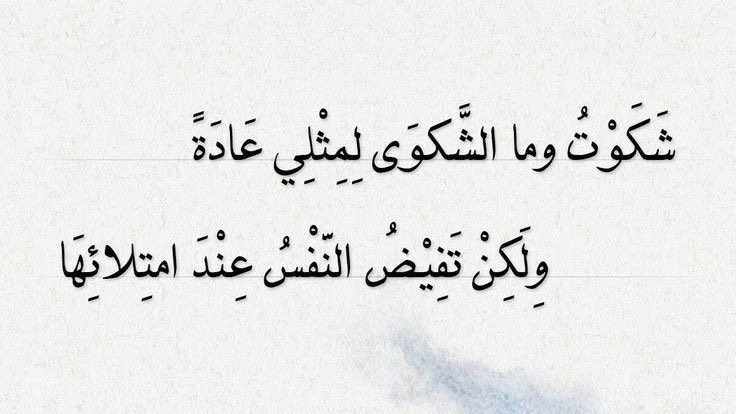 شَكَوْتُ وما الشَّكوَى لِمِثْلِي عَادَةً
وِلَكِنْ تَفِيْضُ النّفْسُ عِنْدَ امتِلائِهَا